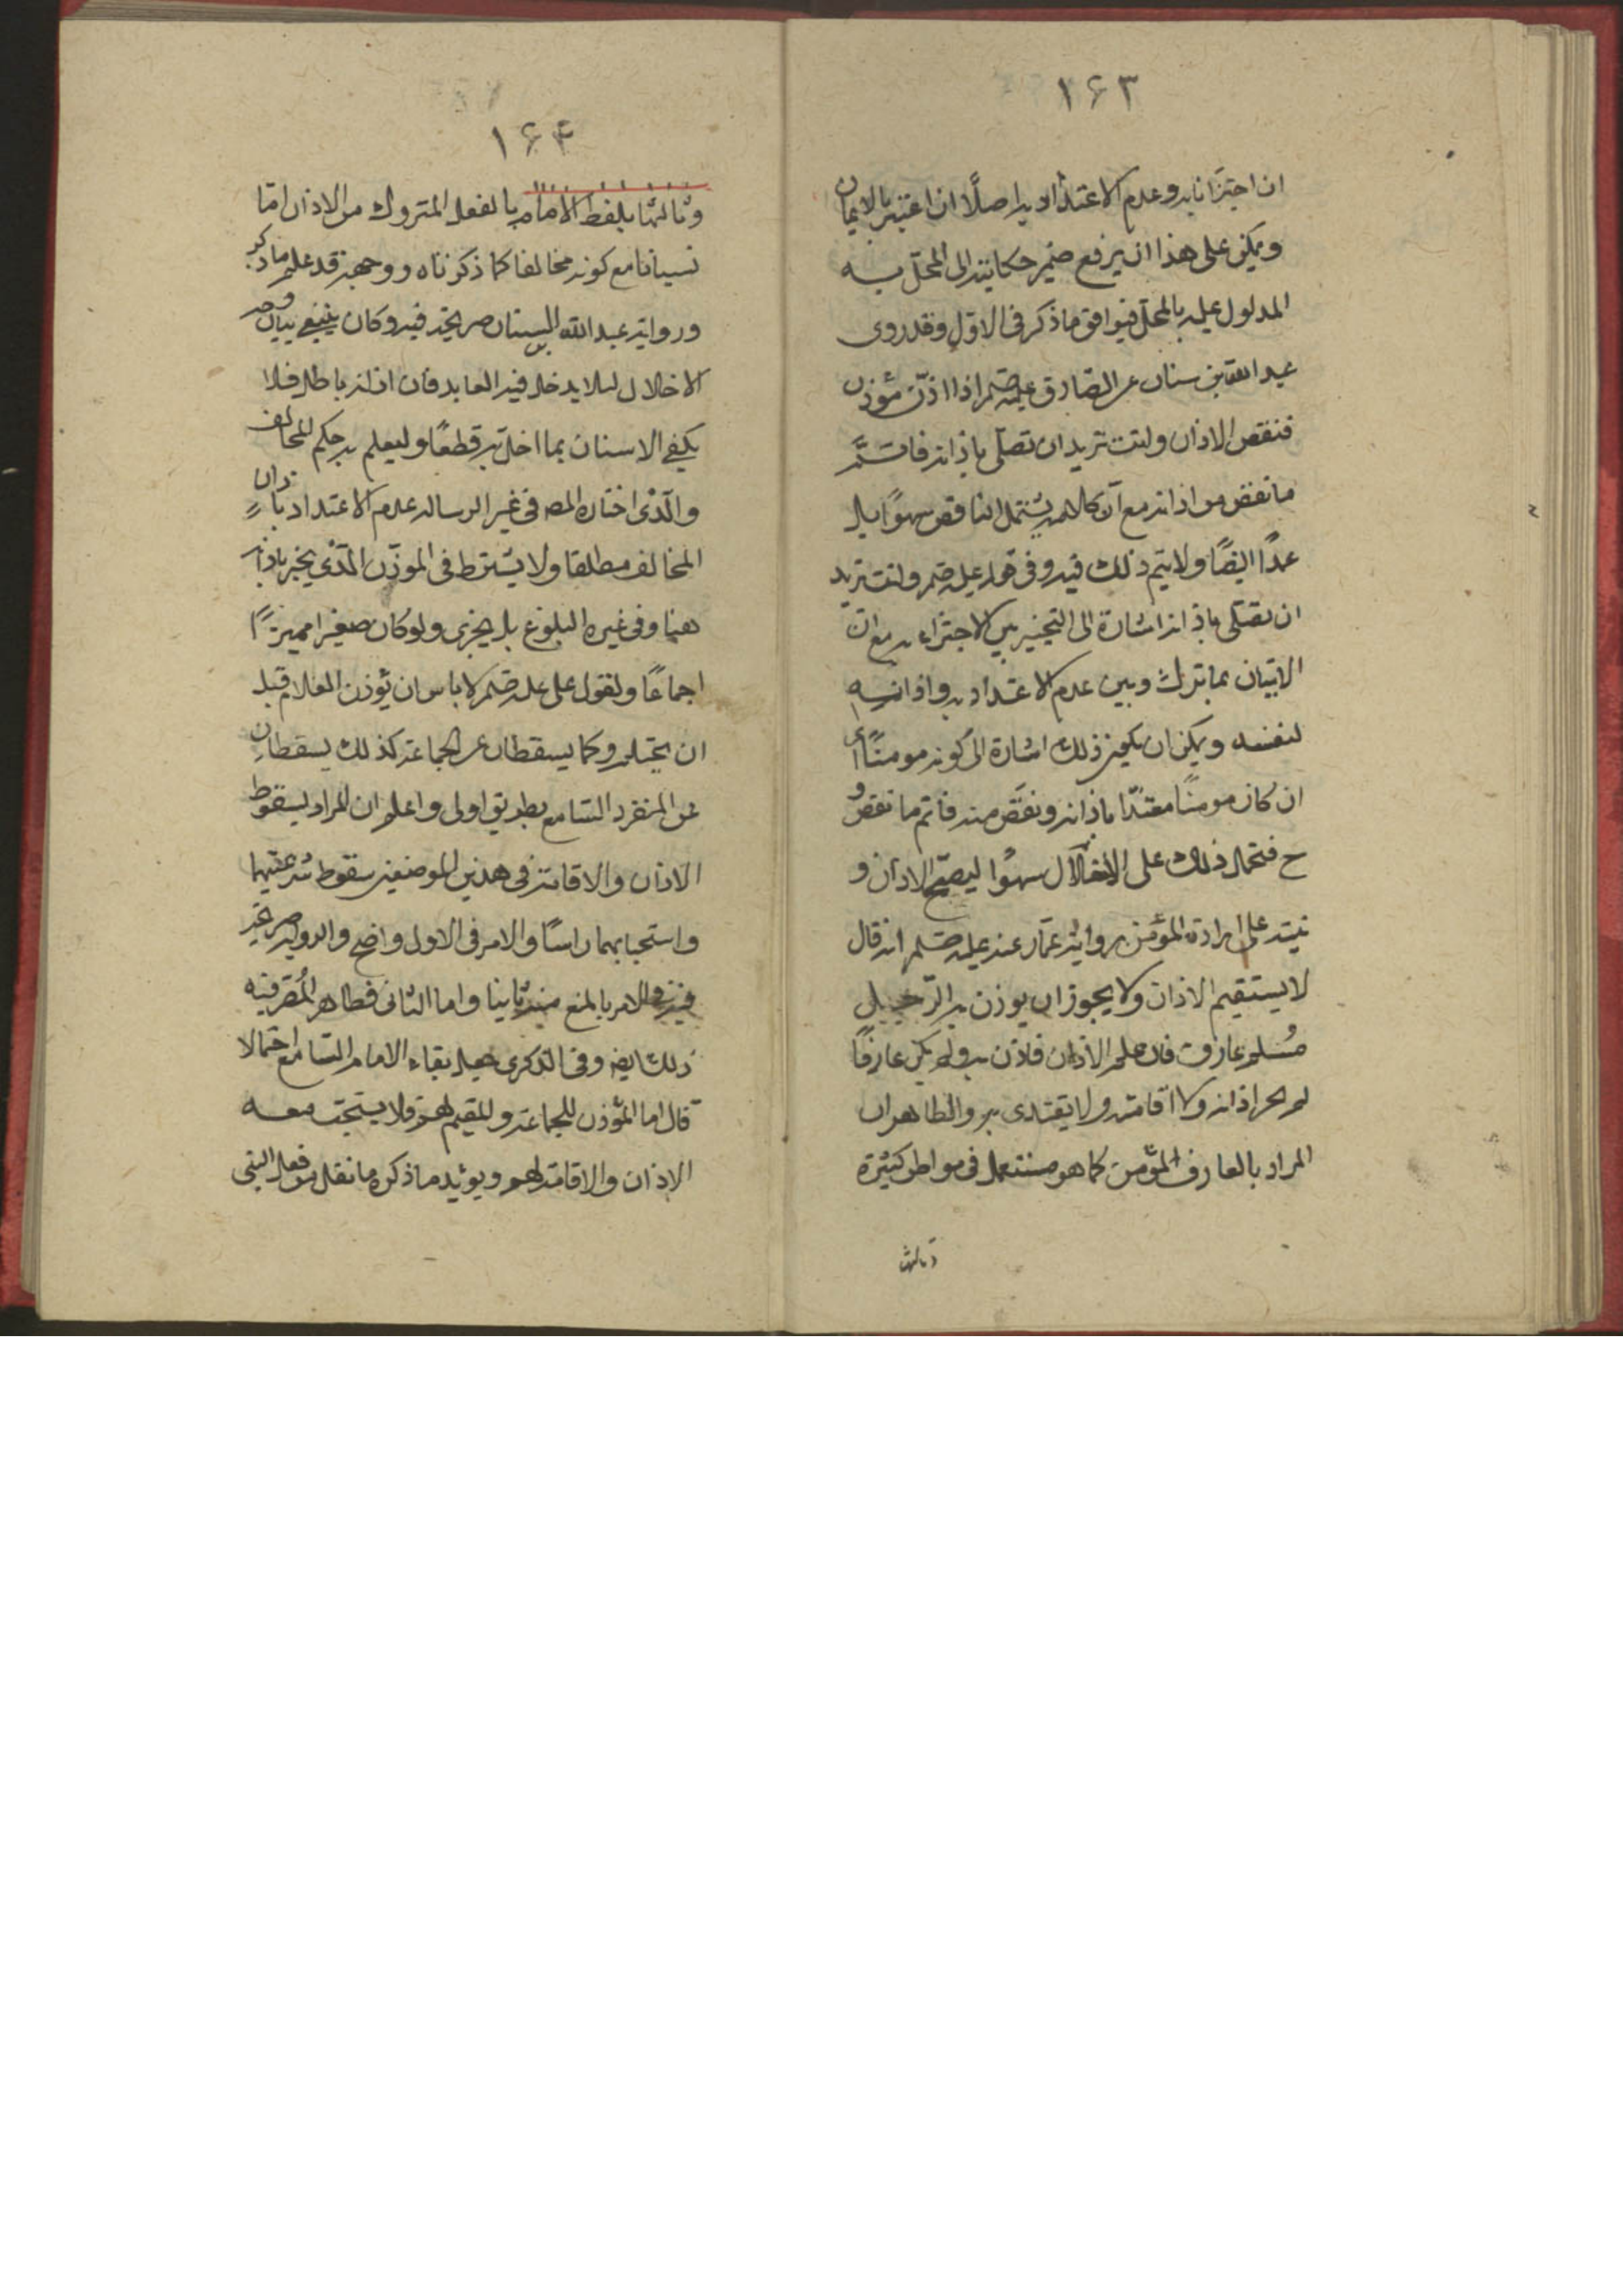 ۱۶۳
ان اجتزانا به وعدم الاعتداد به اصلًا ان اعتبر بالايمان
ويمكن على هذا ان يرفع ضمير حكايته الى المخلّ به
المدلول عليه بالمخلّ فيوافق ما ذكر فى الاوّل وقد روى
عبد الله بن سنان عن الصّادق عليه صلم اذا اذّن مؤذن
فنقص الاذان وانت تريد ان تصلّى باذانه فاتمّ
ما نقص من اذانه مع انّ كلامه يشتمل الناقص سهوًا بل
عمدًا ايضًا ولا يتم ذلك فيه وفى قوله عليه صلم وانت تريد
ان تصلّى باذانه اشارة الى التخيير بين الاجتزاء به مع
الاتيان بما ترك وبين عدم الاعتداد به واذانه
لنفسه ويمكن ان يكون ذلك اشارة الى كونه مومنًا اى
ان كان مومنًا معتدّا باذانه ونقص منه فاتم ما نقص و
ح فتحمل ذلك على الاخلال سهوًا ليصحّ الاذان و
نبّه على ارادة المؤمن رواية عمّار عنه عليه صلم انه قال
لا يستقيم الاذان ولا يجوز ان يوذن به الا رجل
مُسلم عارف فان علم الاذان فاذن به ولم يكن عارفًا
لم يجز اذانه ولا اقامته ولا يقتدى به والظاهر ان
المراد بالعارف المؤمن كما هو مستعمل فى مواطن كثيرة
وثالثها
۱۶۴
وثالثها تلفظ الامام بالفعل المتروك من الاذان امّا
نسيانا مع كونه مخالفا كما ذكرناه ووجهه قد علم ما ذكر
ورواية عبد الله السنان صريحة فيه وكان ينبغى بيان وجه
الاخلال لئلا يدخل فيه العامد فان اذانه باطل فلا
يكفى الاسنان بما اخل به قطعًا وليعلم به حكم المخالف
والّذى اختاره المص فى غير الرساله عدم الاعتداد باذان
المخالف مطلقا ولا يشترط فى الموذّن الّذى يجتزى باذانه
هنا وفى غيره البلوغ بل يجزى ولو كان صغيرا مميزًا
اجماعًا ولقول على عليه صلم لا باس ان يؤذن الغلام قبل
ان يحتلم وكما يسقطان عن الجماعة كذلك يسقطان
عن المنفرد السّامع بطريق اولى واعلم ان المراد بسقوط
الاذان والاقامة فى هذين الموضعين سقوط شرعيتهما
واستحبابهما راسًا والامر فى الاول واضح والرواية صريحة
فيه والامر بالمنع منه ثانيا واما الثانى فظاهر المُص فيه
ذلك ايضا وفى الذكرى جعل بقاء الامام السّامع احتمالا
قال اما المؤذن للجماعة والمقيم لهم فلا يستحب معه
الاذان والاقامة لهم ويؤيد ما ذكره ما نقل من فعل النبى